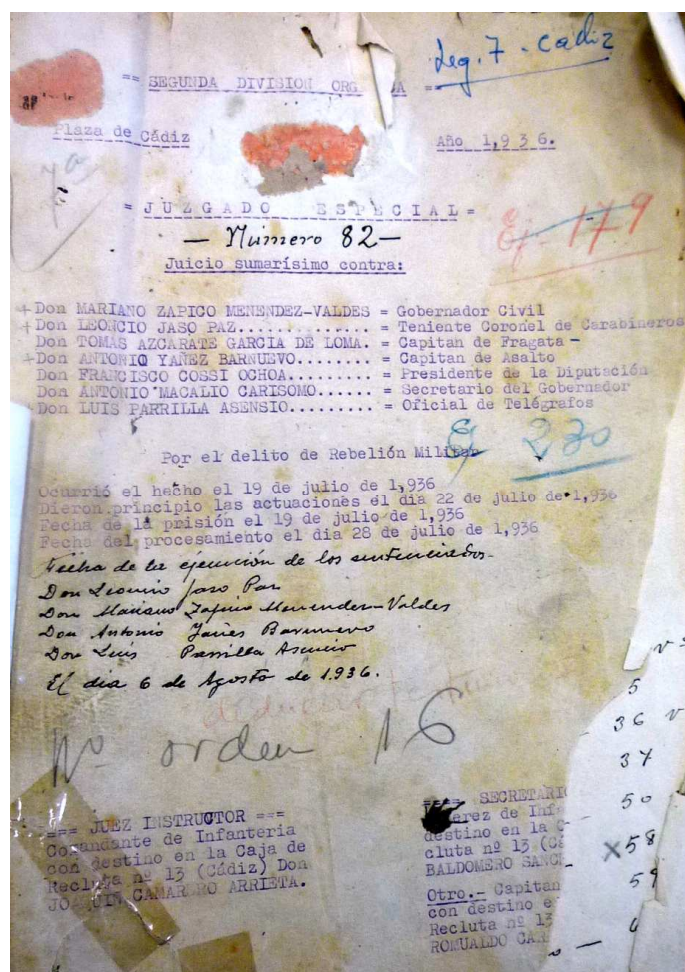 Leg. 7 - Cadiz
== SEGUNDA DIVISION ORG DA ==
Plaza de Cádiz
Año 1,936.
= JUZGADO ESPECIAL =
— Número 82 —
Ej- 179
Juicio sumarísimo contra:
+ Don MARIANO ZAPICO MENENDEZ-VALDES = Gobernador Civil
+ Don LEONCIO JASO PAZ.............. = Teniente Coronel de Carabineros
Don TOMAS AZCARATE GARCIA DE LOMA. = Capitan de Fragata -
+ Don ANTONIO YAÑEZ BARNUEVO........ = Capitan de Asalto
Don FRANCISCO COSSI OCHOA......... = Presidente de la Diputación
Don ANTONIO MACALIO CARISOMO...... = Secretario del Gobernador
+ Don LUIS PARRILLA ASENSIO......... = Oficial de Telégrafos
Por el delito de Rebelión Militar
230
Ocurrió el hecho el 19 de julio de 1,936
Dieron principio las actuaciones el dia 22 de julio de 1,936
Fecha de la prisión el 19 de julio de 1,936
Fecha del procesamiento el dia 28 de julio de 1,936
Fecha de la ejecución de los sentenciados-
Don Leoncio Jaso Paz
Don Mariano Zapico Menendez-Valdes
Don Antonio Yañez Barnuevo
Don Luis Parrilla Asensio
El dia 6 de Agosto de 1.936.
Nº orden 16
5
36
37
50
x58
59
=== JUEZ INSTRUCTOR ===
Comandante de Infanteria
con destino en la Caja de
Recluta nº 13 (Cádiz) Don
JOAQUIN CAMARERO ARRIETA.
SECRETARIO
erez de Inf
destino en la C
cluta nº 13 (Cá
BALDOMERO SANCH
Otro.- Capitan
con destino e
Recluta nº 13
ROMUALDO CAR